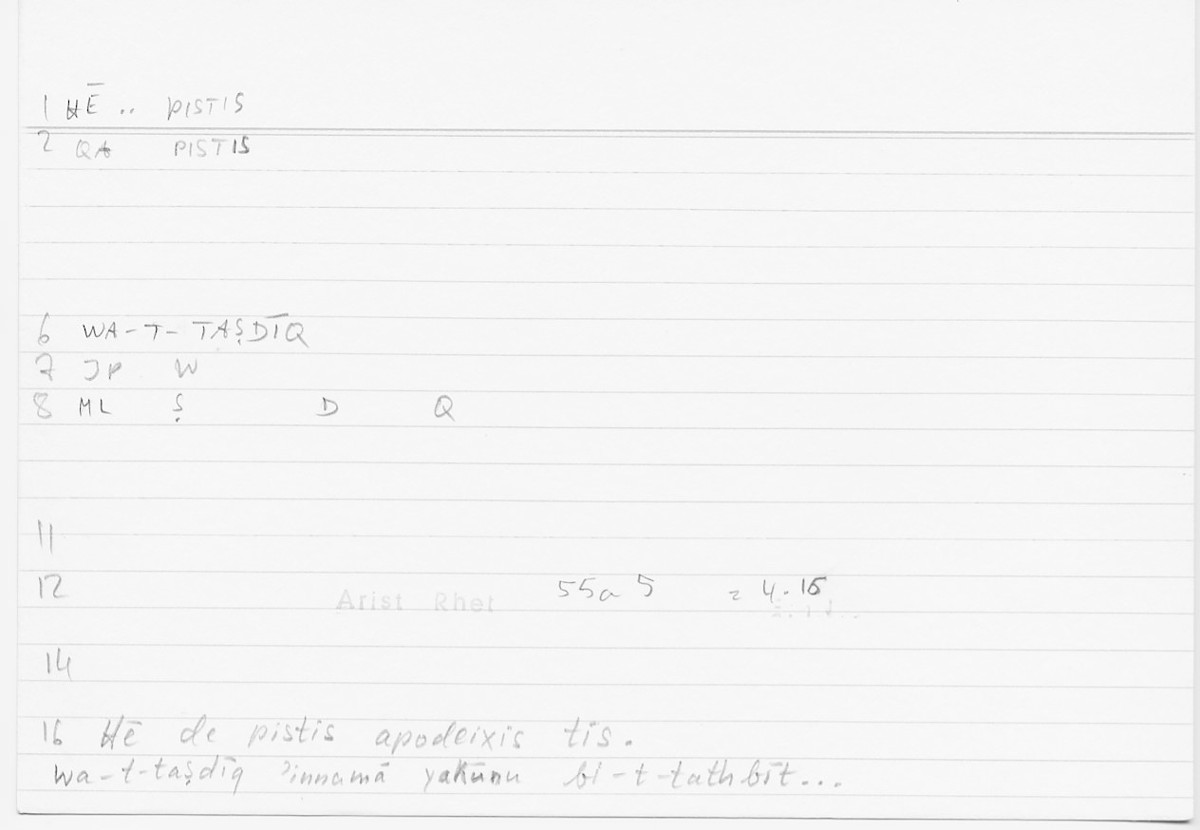 1 HĒ .. PISTIS
2 QA PISTIS
6 WA-T-TAṢDĪQ
7 JP W
8 ML Ṣ D Q
11
12 Arist Rhet 55a 5 = 4.15
14
16 Hē de pistis apodeixis tis.
wa-t-taṣdīq ʾinnamā yakūnu bi-t-tathbīt...